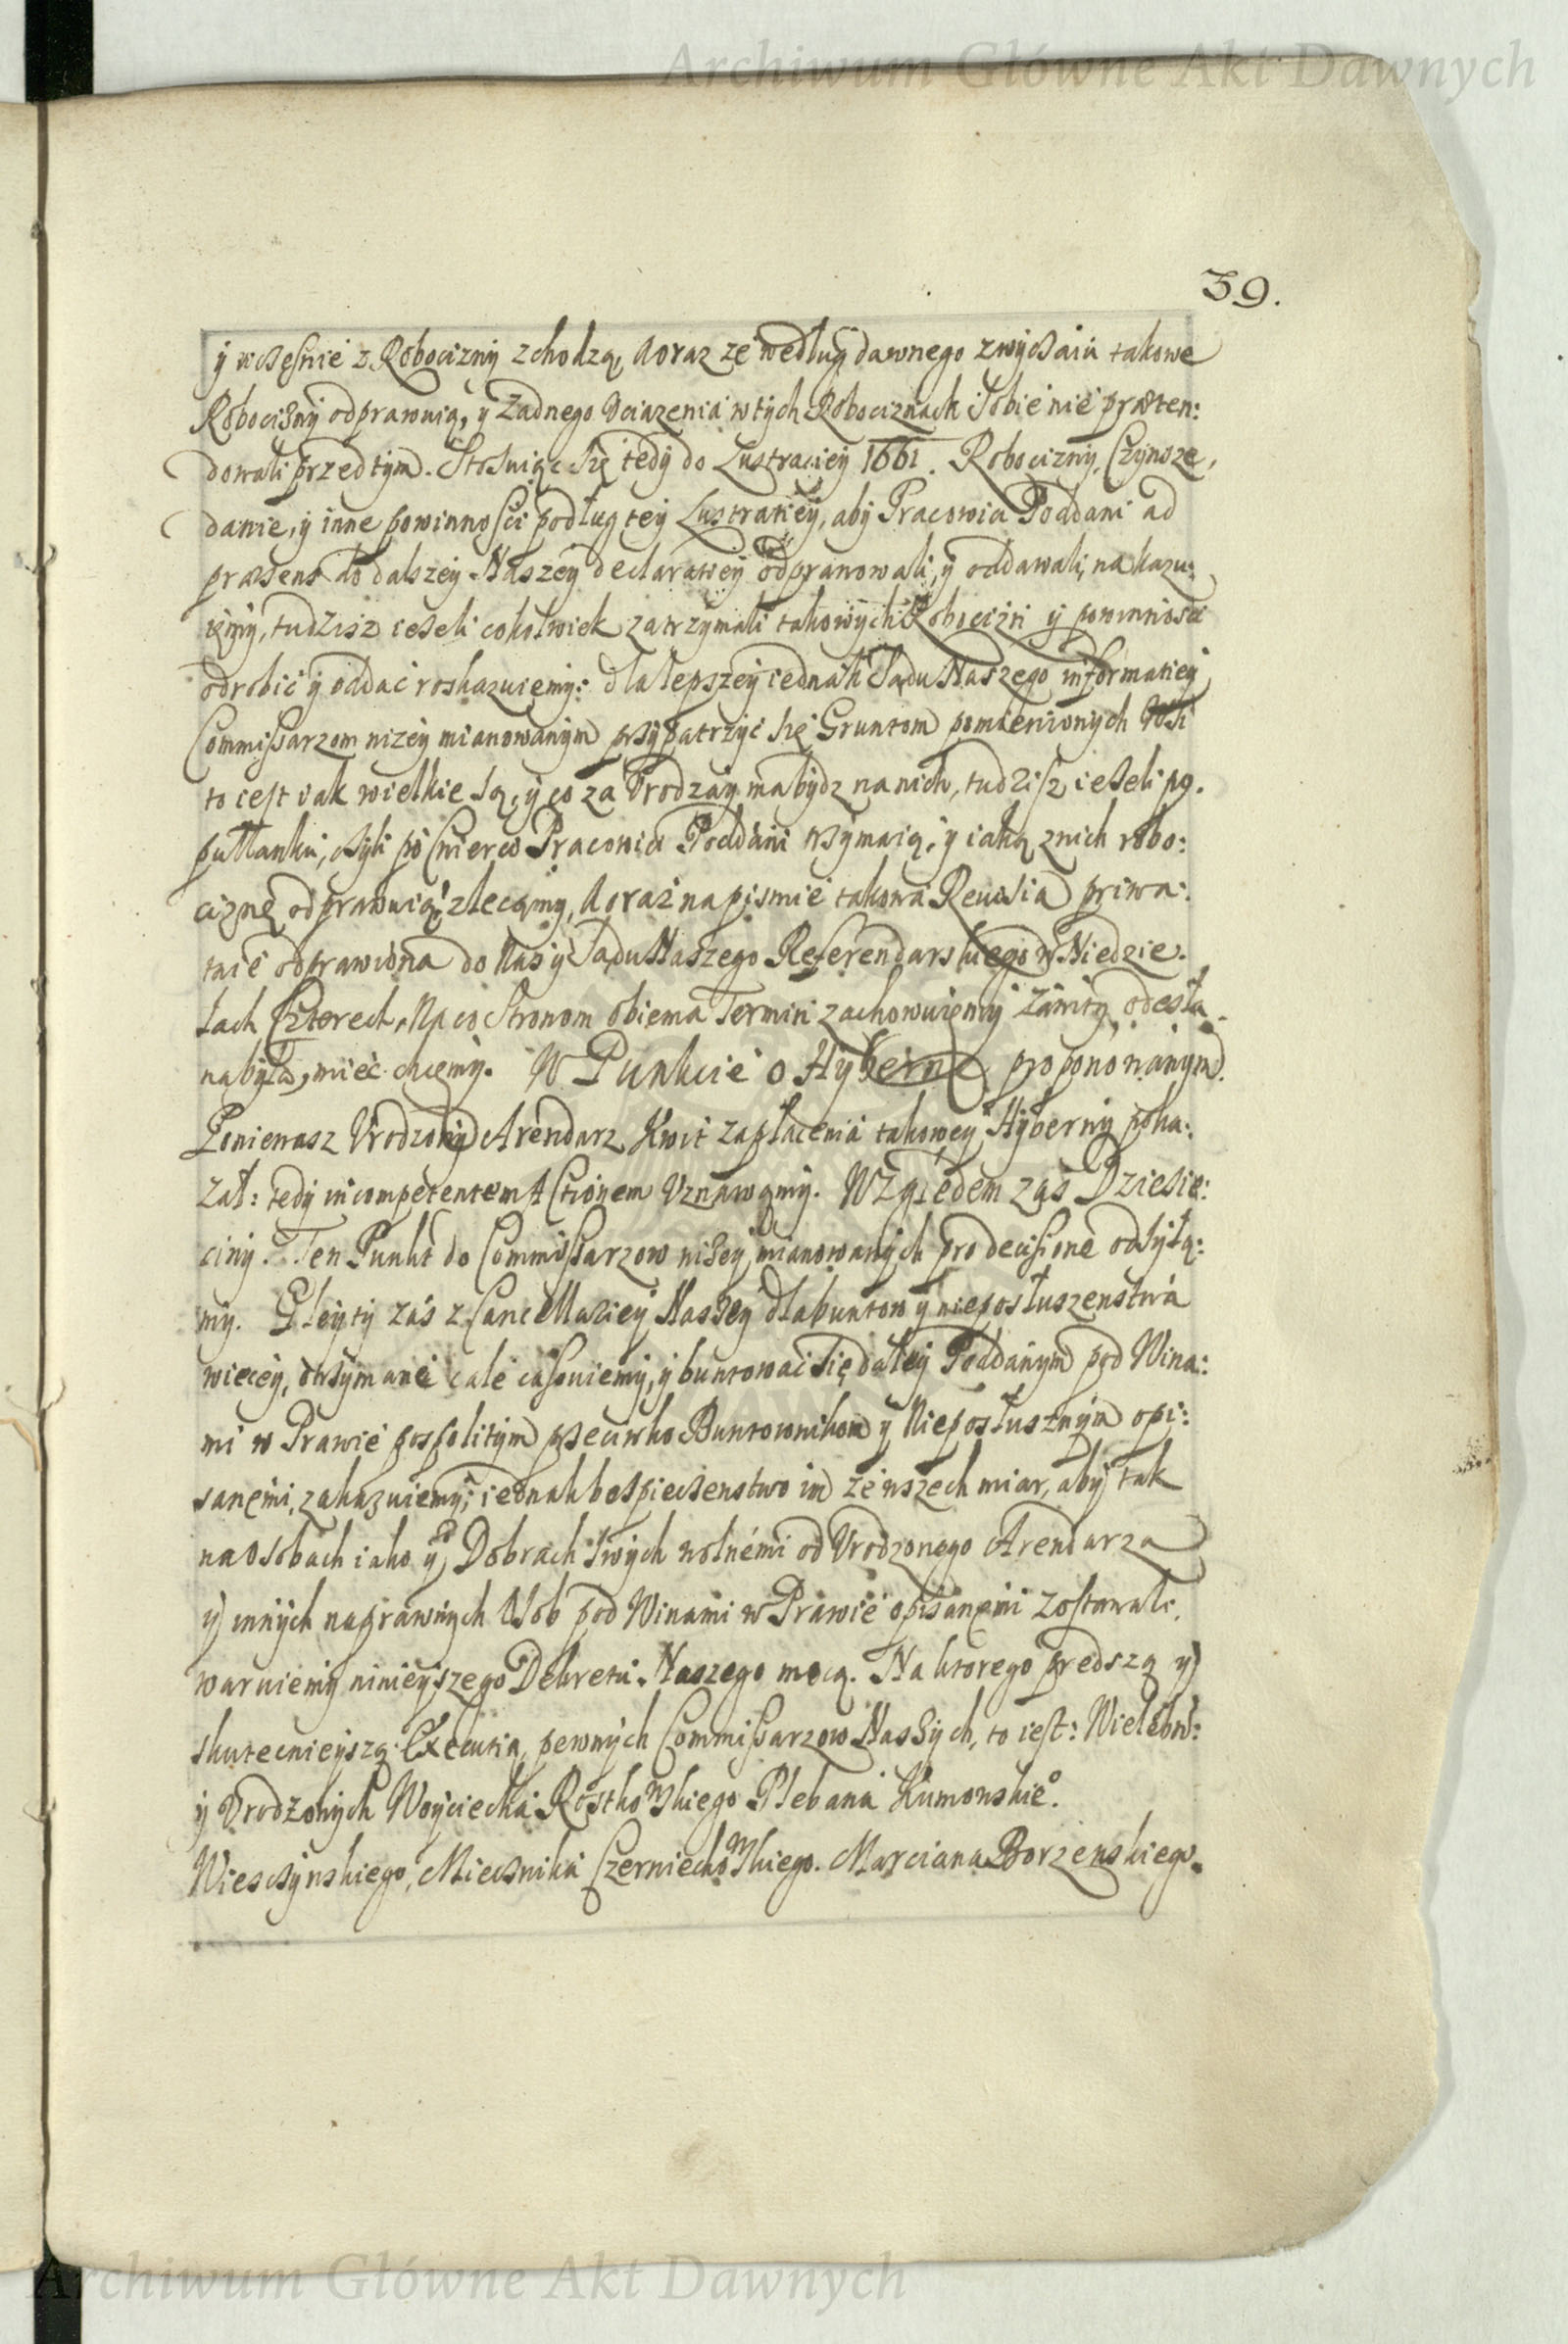 Archiwum Główne Akt Dawnych
39.
y wcześnie z Robocizny zchodzą, Aoraz ze według dawnego zwyczaiu takowe
Robocizny odprawuią, y Zadnego Vciązenia w tych Robociznach Sobie nie præten:
dowali przed tym. Stosuiąc się tedy do Lustraciey 1661. Robocizny, Czynsze,
danie, y inne powinnosci podług tey Lustraciey, aby Pracowici Poddani ad
præsens do dalszey Naszey declaratiey odprawowali, y oddawali, nakazu:
iemy, tudzisz ieżeli cokolwiek zatrzymali takowych Robocizn y powinnosci
odrobić y oddać roskazuiemy: dla lepszey iednak Sądu Naszego informatiey
Commissarzom nizey mianowanym przypatrzyć się Gruntom pomienionych Wsi
to iest iak wielkie są, y co za Vrodzay ma bydz na nich, tudzisz ieżeli po
pułłanku, czyli po Cwierci Pracowici Poddani trzymaią, y iaką z nich robo:
ciznę odprawuią, zlecamy, Aoraz na pismie takowa Rewisia priwa:
tnie odprawiona do Nas y Sądu Naszego Referendarskiego w Niedzie.
lach Czterech, Na co Stronom obiema Termin zachowuiemy Zawity, odesła
na była, mieć chcemy. W Punkcie o Hybernę proponowanym
Ponieważ Vrodzony Arendarz Kwit zapłacenia takowey Hyberny poka:
zał: tedy incompetentem Actionem Vznawamy. Względem zaś Dziesie:
ciny. Ten Punkt do Commissarzow niżey mianowanych pro decisione odsyła:
my. Gleyty zaś z Cancellariey Naszey dla buntow y nieposłuszenstwa
wiecey, otrzymane cale cassuiemy, y buntować się daley Poddanym pod Wina:
mi w Prawie pospolitym przeciwko Buntownikom y Nieposłusznym opi:
sanemi, zakazuiemy; iednak bespieczenstwo im ze wszech miar, aby tak
na Osobach iako y Dobrach swych wolnémi od Vrodzonego Arendarza
y innych naprawnych Osob pod Winami w Prawie opisanemi zostawali,
waruiemy ninieyszego Dekretu Naszego mocą. Na ktorego prędszą y
skutecnieyszą Executią, pewnych Commissarzow Naszych, to iest: Wielebn:
y Vrodzonych Woyciecha Rostkowskiego Plebana Kumowskieo.
Wiesczynskiego, Miecznika Czerniechowskiego. Marciana Borzenskiego.
Archiwum Główne Akt Dawnych